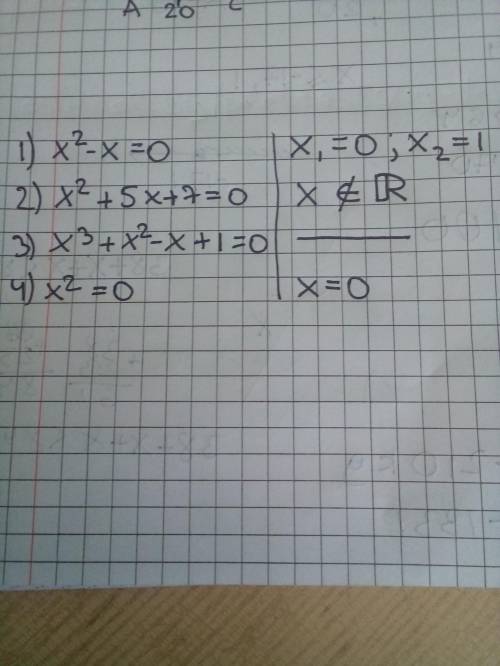 A 20 C
1) x² - x = 0 | x₁ = 0 ; x₂ = 1
2) x² + 5x + 7 = 0 | x ∉ ℝ
3) x³ + x² - x + 1 = 0 | ———
4) x² = 0 | x = 0